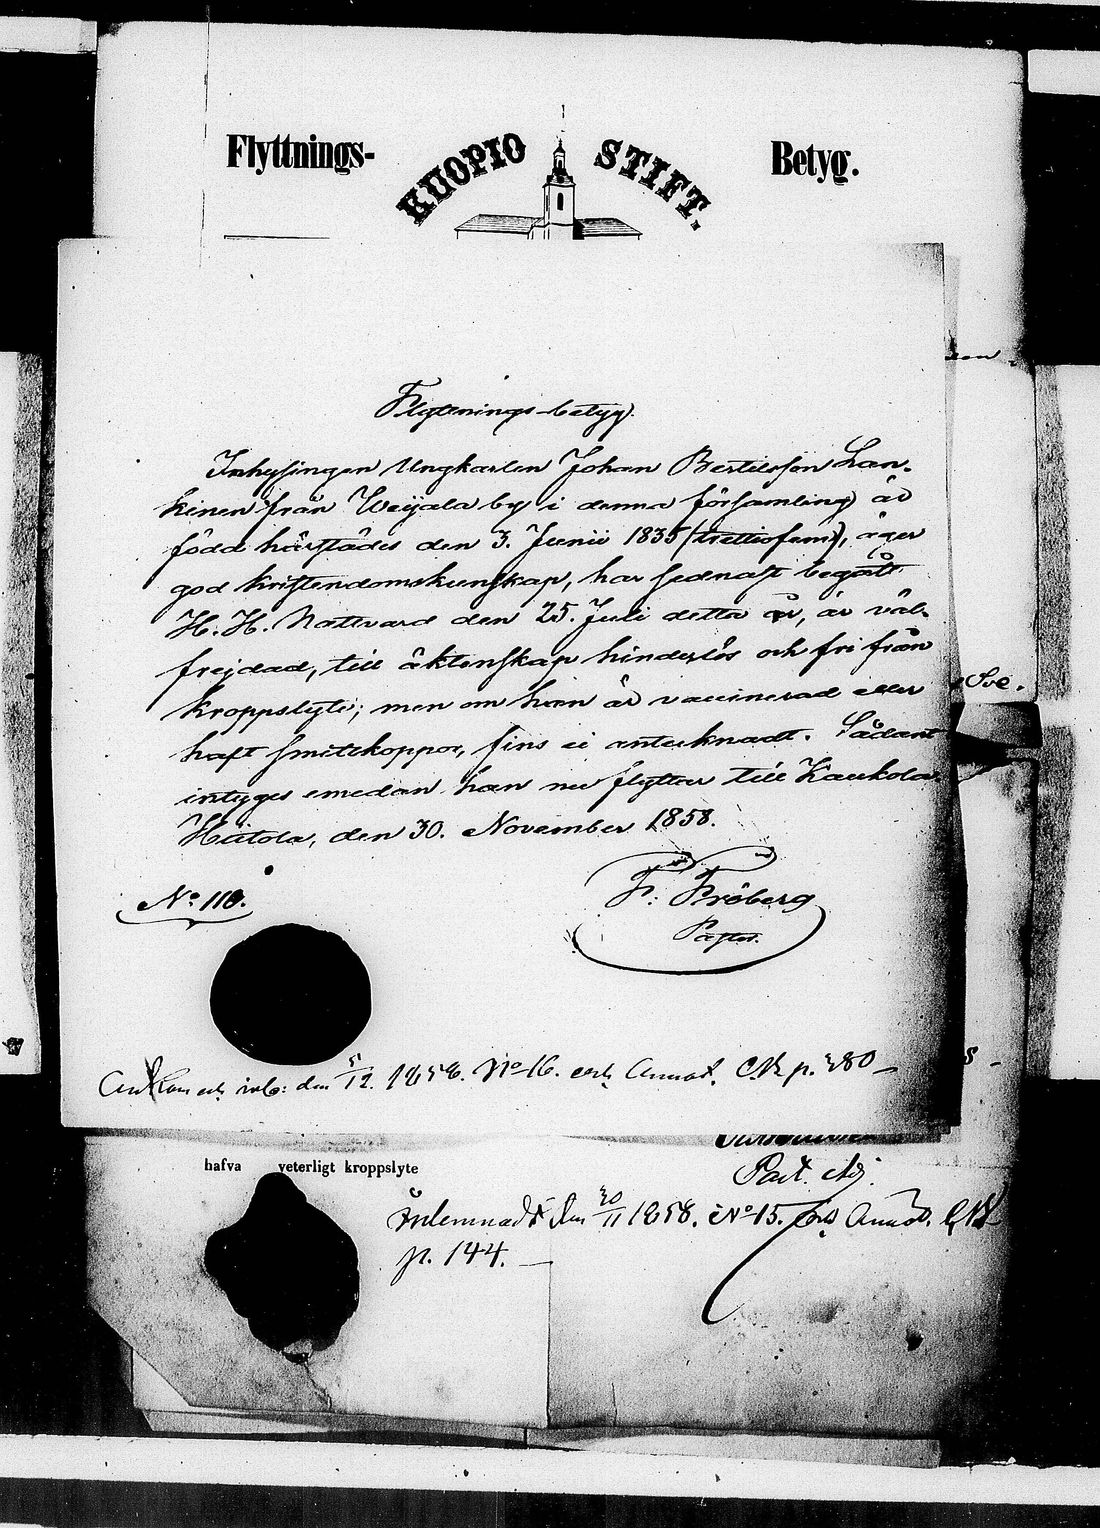 Flyttnings- KUOPIO STIFT. Betyg.
Flyttnings-betyg.
Inhysingen Ungkarlen Johan Bertilsson Lan-
kinen från Weijala by i denna församling är
född härstädes den 3. Junii 1835 (trettiofem), äger
god kristendomskunskap, har sednast begått
H. H. Nattvard den 25. Juli detta år, är väl-
frejdad, till äktenskap hinderlös och fri från
kroppslyte; men om han är vaccinerad eller
haft smittkoppor, fins ei antecknadt. Sådant
intygas emedan han nu flyttar till Kaukola.
Hiitola, den 30. November 1858.
F: Fröberg
Pastor.
No 110.
och inlb: den 5/12. 1858. No 16. och Annot. p. 380 -
hafva veterligt kroppslyte
Past. Adj.
Inlemnadt den 30/11 1858. No 15. och Annot.
p. 144. -